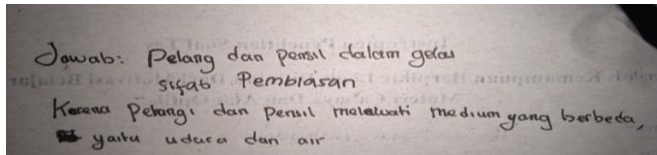 Jawab: Pelang dan pensil dalam gelas
sifat Pembiasan
Karena Pelangi dan pensil melewati medium yang berbeda,
yaitu udara dan air